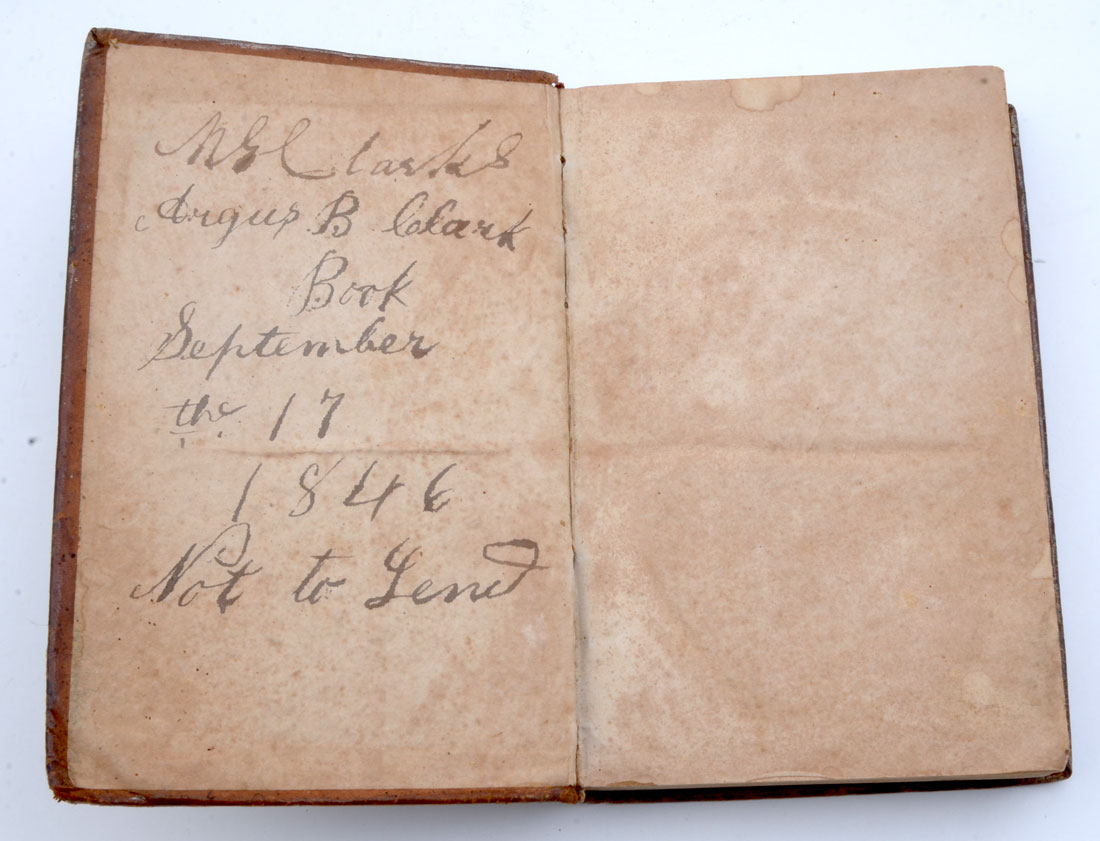 Clarks
Argus B Clark
Book
September
the 17
1846
Not to Lend